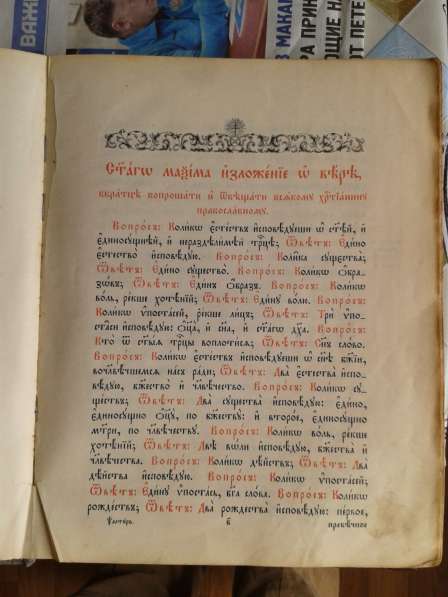 ВАЖН
З МАКАР
РА ПРИН
УЮЩИЕ НА
ОТ ПЕТЕ
Ст҃а́гѡ маѯі́ма и҆зложе́нїе ѡ҆ вѣ́рѣ,
вкра́тцѣ вопроша́ти и҆ ѿвѣща́ти всѧ́кому хрⷭ҇тїа́нину
правосла́вному.
Вопро́съ: Коли́кѡ є҆сте́ствъ и҆сповѣ́дуеши ѡ҆ ст҃ѣ́й, и҆
є҆диносу́щнѣй, и҆ нераздѣли́мѣй трⷪ҇цѣ; Ѿвѣ́тъ: Є҆ди́но
є҆стество̀ и҆сповѣ́дую. Вопро́съ: Коли́ка существа̀;
Ѿвѣ́тъ: Є҆ди́но существо̀. Вопро́съ: Коли́кѡ ѡ҆бра-
зѡ́въ; Ѿвѣ́тъ: Є҆ди́нъ ѡ҆́бразъ. Вопро́съ: Коли́кѡ
во́ль, ре́кше хотѣ́нїй; Ѿвѣ́тъ: Є҆ди́ну во́лю. Вопро́съ:
Коли́кѡ ѵ҆поста́сей, ре́кше ли́цъ; Ѿвѣ́тъ: Трѝ ѵ҆по-
ста̑си и҆сповѣ́дую: ѻ҆ц҃а̀, и҆ сн҃а, и҆ ст҃а́гѡ дх҃а. Вопро́съ:
Кто̀ ѿ ст҃ы́ѧ трⷪ҇цы воплоти́сѧ; Ѿвѣ́тъ: Сн҃ъ сло́во.
Вопро́съ: Коли́кѡ є҆сте́ствъ и҆сповѣ́дуеши ѡ҆ сн҃ѣ бж҃їи,
вочл҃вѣ́чшемсѧ на́съ ра́ди; Ѿвѣ́тъ: Два̀ є҆стества̑ и҆спо-
вѣ́дую, бж҃ество̀ и҆ чл҃вѣ́чество. Вопро́съ: Коли́кѡ су́-
ществъ; Ѿвѣ́тъ: Два̀ существа̑ и҆сповѣ́дую: є҆ди́но,
є҆диносу́щно ѻ҆ц҃у̀, по бж҃еству̀: и҆ второ́е, є҆диносу́щно
мт҃ри, по чл҃вѣ́честву. Вопро́съ: Коли́кѡ во́ль, ре́кше
хотѣ́нїй; Ѿвѣ́тъ: Двѣ̀ вѡ́ли и҆сповѣ́дую, бж҃ества̀ и҆
чл҃вѣ́чества. Вопро́съ: Коли́кѡ дѣ́йствъ; Ѿвѣ́тъ: Два̀
дѣ̑йства и҆сповѣ́дую. Вопро́съ: Коли́кѡ ѵ҆поста́сей;
Ѿвѣ́тъ: Є҆ди́ну ѵ҆поста́сь, бг҃а сло́ва. Вопро́съ: Коли́кѡ
рожде́ствъ; Ѿвѣ́тъ: Два̀ рождества̑ и҆сповѣ́дую: пе́рвое,
Ѱалти́рь. б҃ превѣ́чное